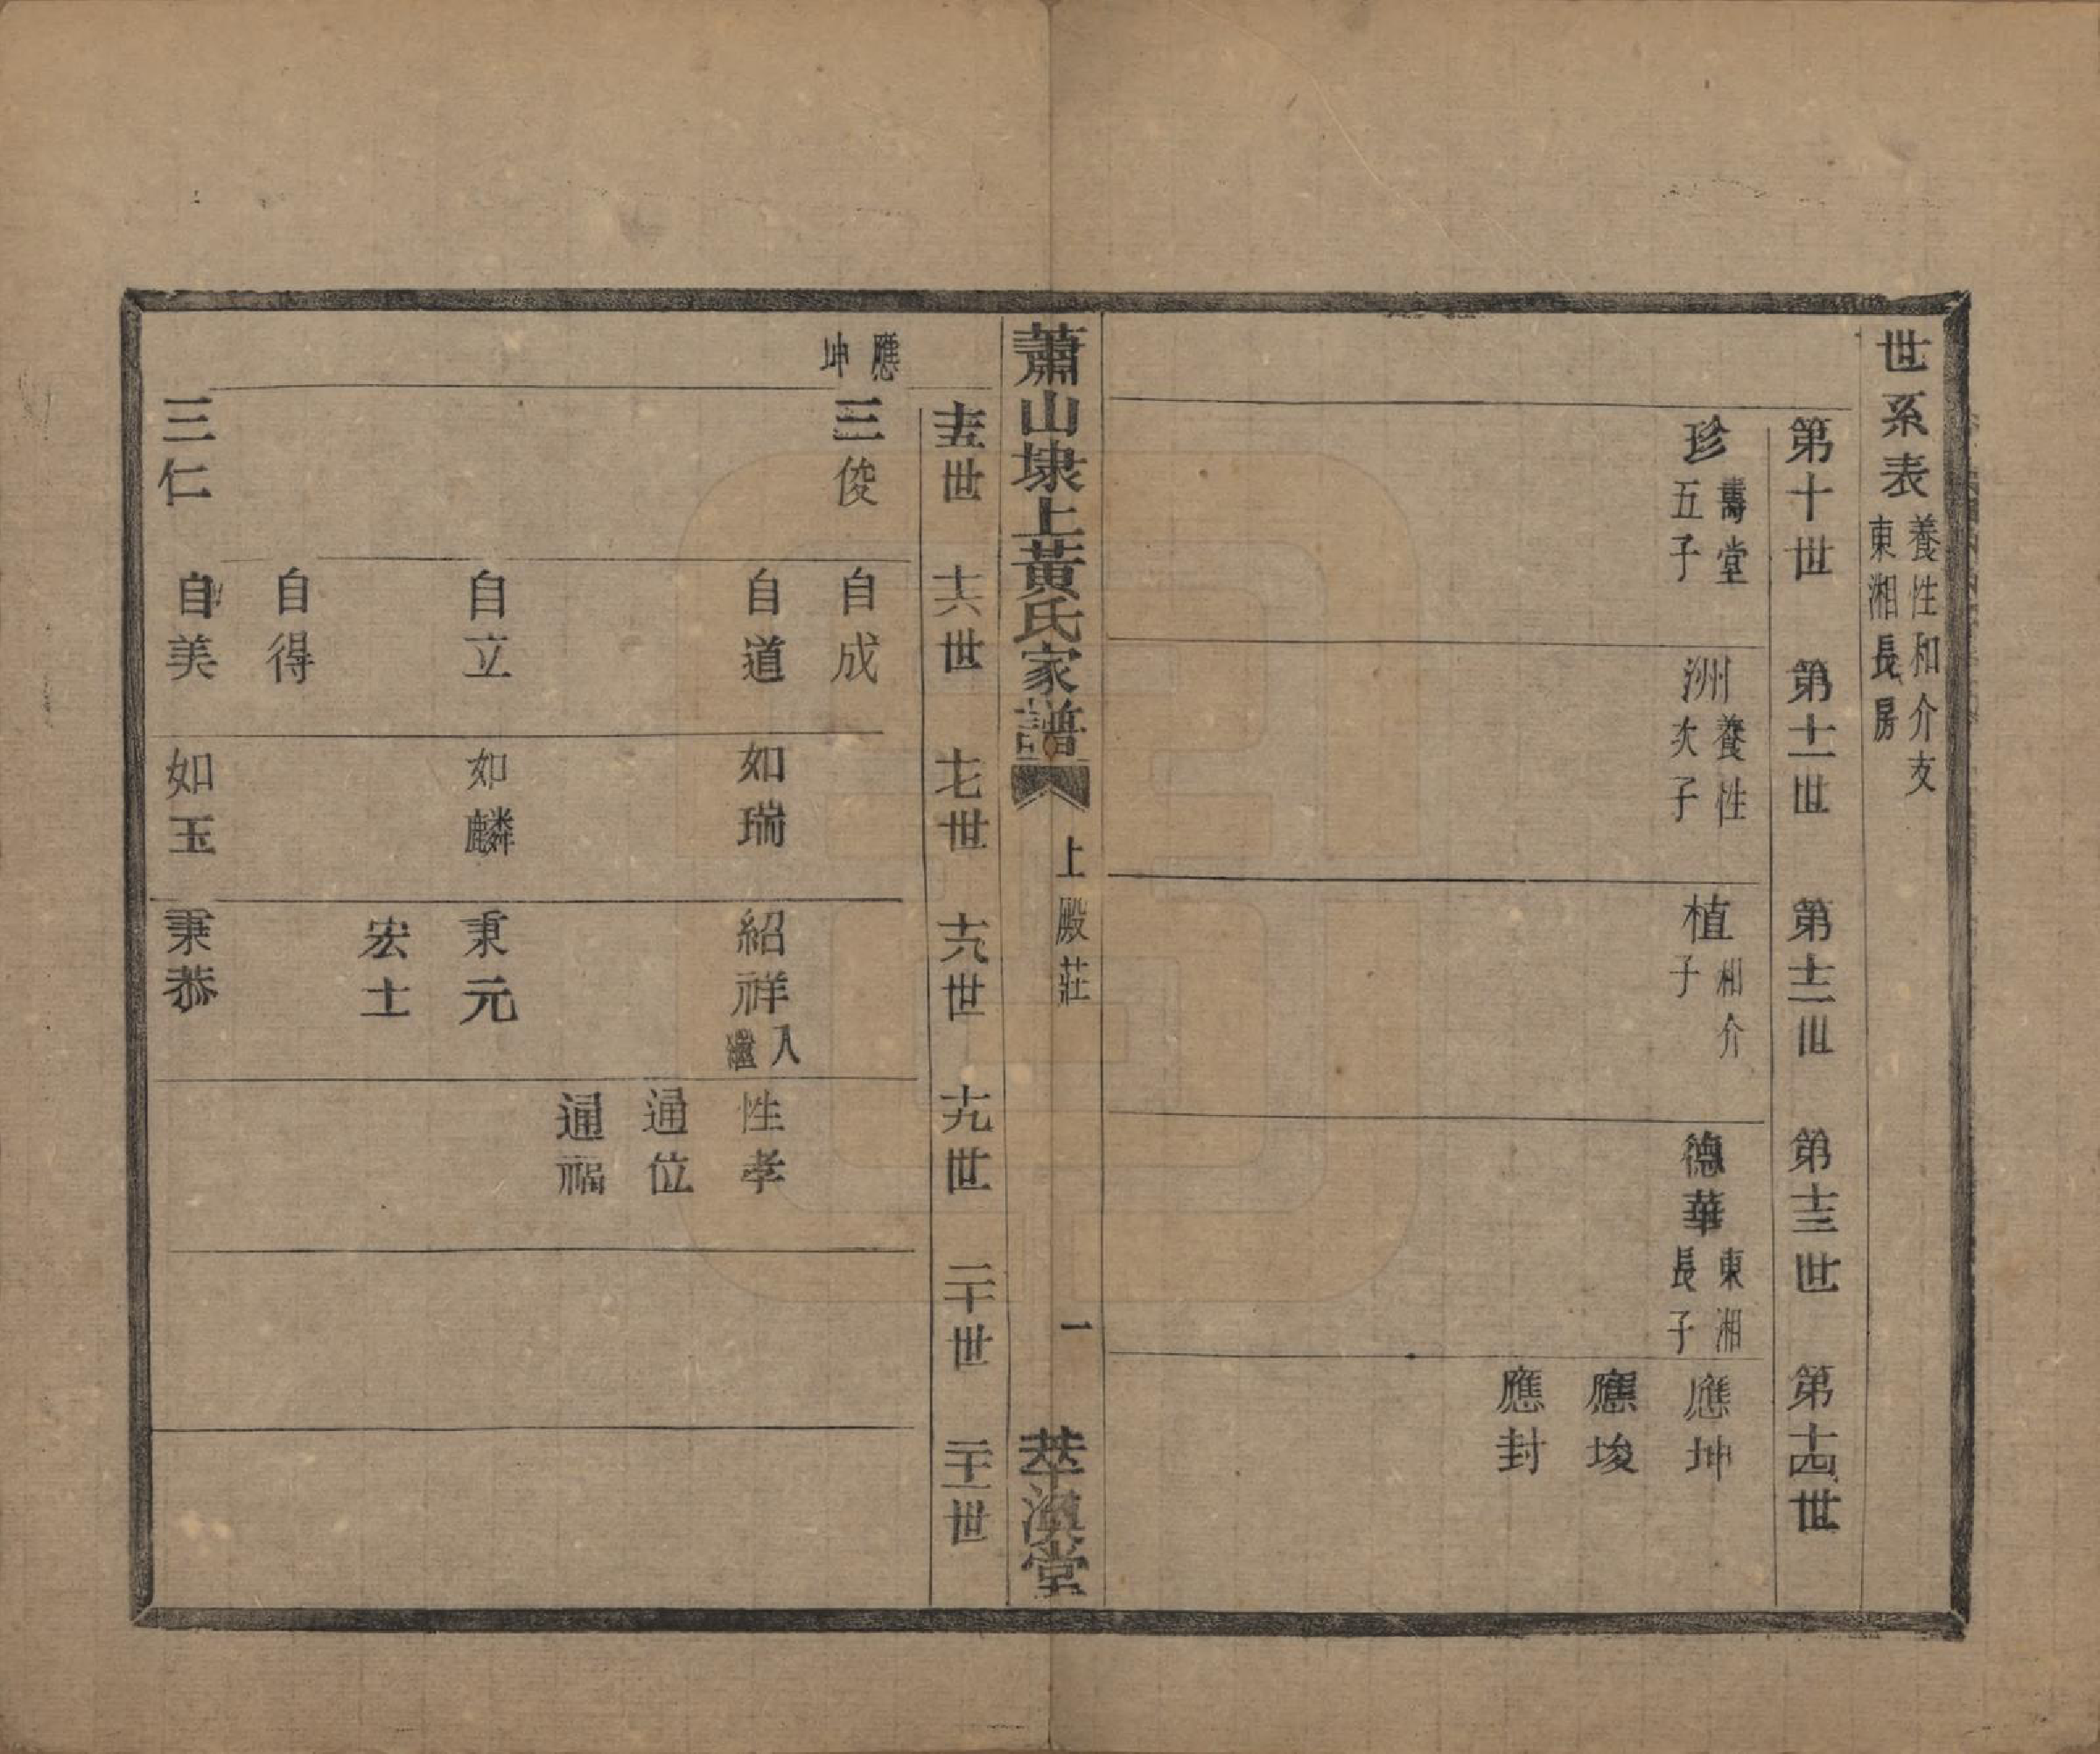 世系表
養性和介支
東湘長房
第十世
第十一世
第十二世
第十三世
第十四世
珍
壽堂
五子
洲
養性
次子
植
和介
子
德華
東湘
長子
應坤
應埈
應封
蕭山埭上黃氏家譜
上殿莊
一
萃渙堂
十五世
十六世
十七世
十八世
十九世
二十世
二十一世
應坤
三俊
自成
自道
如瑞
紹祥
入繼
性孝
通位
通福
自立
如麟
秉元
宏士
自得
三仁
自美
如玉
秉恭